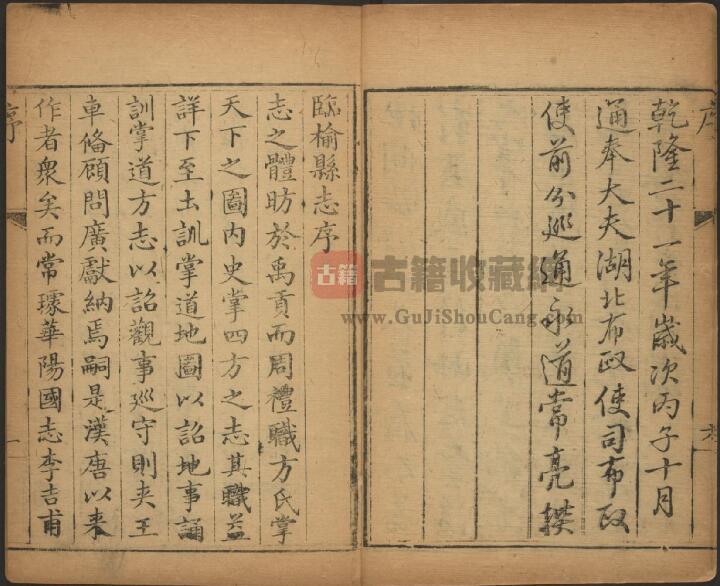 乾隆二十一年歲次丙子十月
通奉大夫湖北布政使司布政
使前分巡通永道常亮撰
臨榆縣志序
志之體昉於禹貢而周禮職方氏掌
天下之圖內史掌四方之志其職益
詳下至土訓掌道地圖以詔地事誦
訓掌道方志以詔觀事巡守則夾王
車俻顧問廣獻納焉嗣是漢唐以来
作者衆矣而常璩華陽國志李吉甫
序
一
古籍
古籍收藏網
www.GuJiShouCang.com